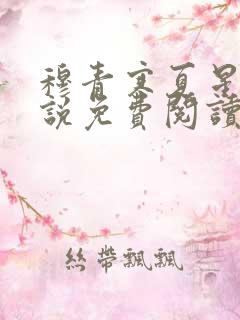 穆青寒夏星
說免費閱讀
絲帶飄飄